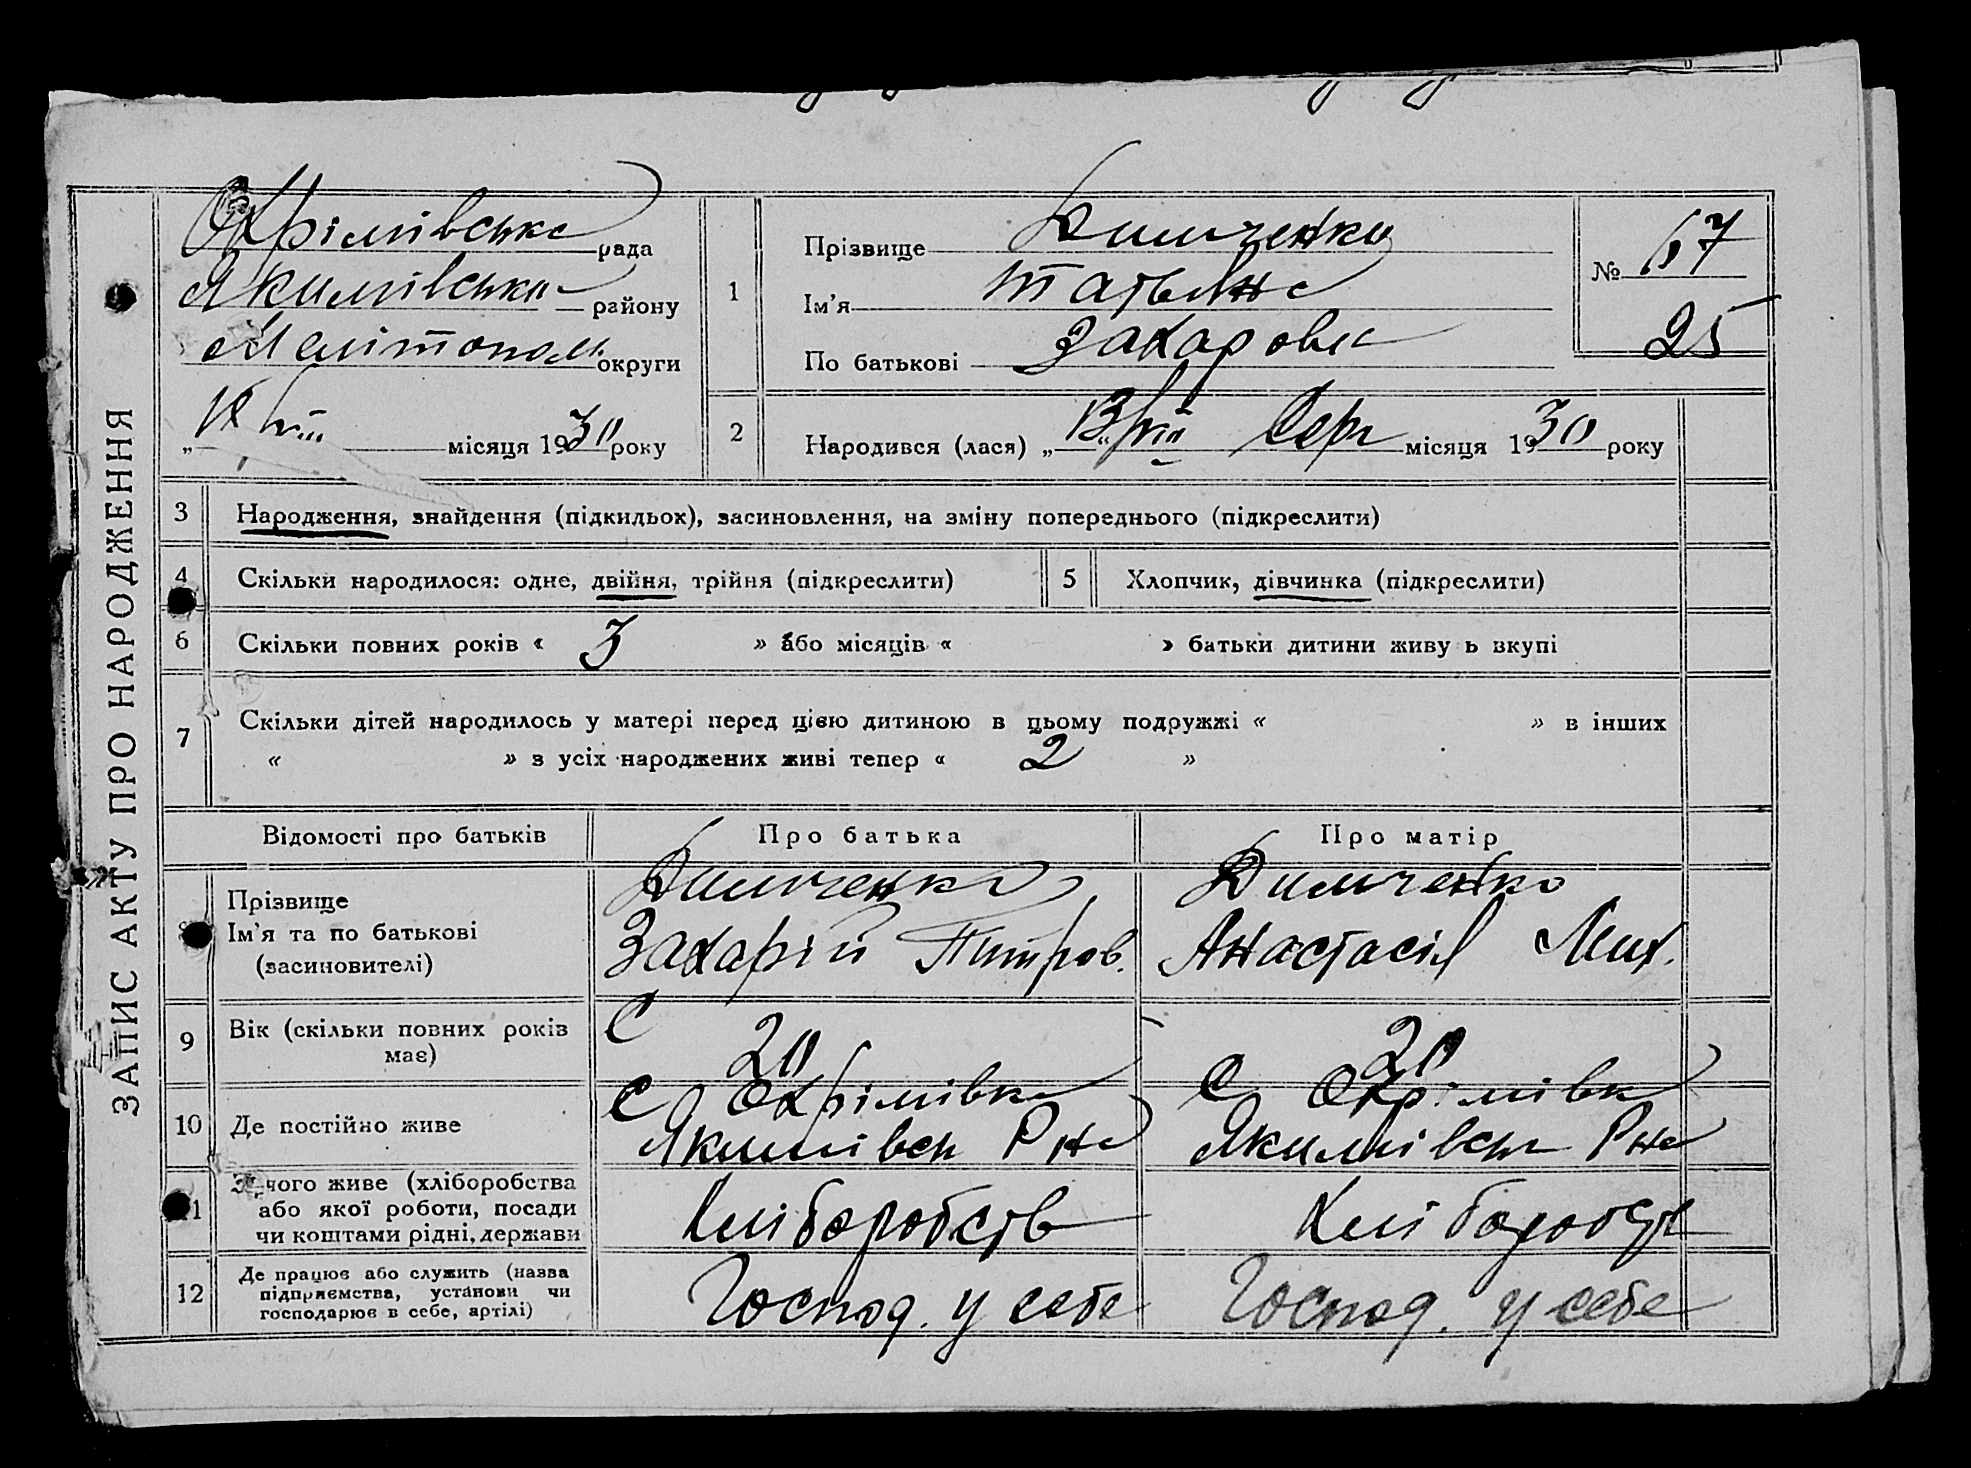 ЗАПИС АКТУ ПРО НАРОДЖЕННЯ
Охрімівська рада
Якимівська району
Мелітополь округи
місяця 1930 року
1
Прізвище Димченко
Ім'я Татьяна
По батькові Захаровна
№ 67
25
2
Народився (лася) „ 13 VIII Серп місяця 1930 року
3 Народження, знайдення (підкидьок), засиновлення, на зміну попереднього (підкреслити)
4 Скільки народилося: одне, двійня, трійня (підкреслити)
5 Хлопчик, дівчинка (підкреслити)
6 Скільки повних років « 3 » або місяців « » батьки дитини живу ь вкупі
7 Скільки дітей народилось у матері перед цією дитиною в цьому подружжі « » в інших
« » з усіх народжених живі тепер « 2 »
Відомості про батьків Про батька Про матір
8
Прізвище
Ім'я та по батькові
(засиновителі)
Димченко
Захарій Питров.
Димченко
Анастасія Мих.
9
Вік (скільки повних років
має)
20
20
10 Де постійно живе
С Охрімівка
Якимівськ Рна
С Охрімівка
Якимівськ Рна
11
З чого живе (хліборобства
або якої роботи, посади
чи коштами рідні, держави
Хліборобств
Хліборобств
12
Де працює або служить (назва
підприємства, установи чи
господарює в себе, артілі)
Господ. у себе
Господ. у себе